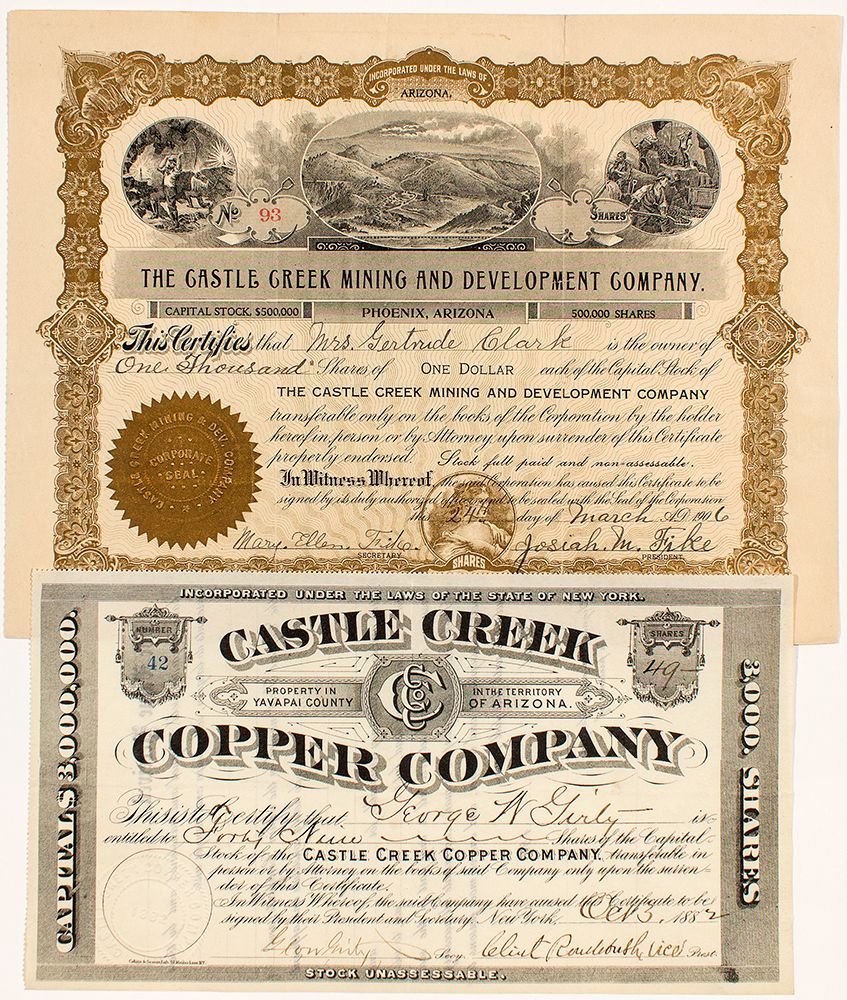 INCORPORATED UNDER THE LAWS OF
ARIZONA,
No 93
SHARES
THE CASTLE CREEK MINING AND DEVELOPMENT COMPANY.
CAPITAL STOCK, $500,000 PHOENIX, ARIZONA 500,000 SHARES
This Certifies that Mrs. Gertrude Clark is the owner of
One Thousand Shares of ONE DOLLAR each of the Capital Stock of
THE CASTLE CREEK MINING AND DEVELOPMENT COMPANY
transferable only on the books of the Corporation by the holder
hereof in person or by Attorney, upon surrender of this Certificate
properly endorsed. Stock full paid and non-assessable.
In Witness Whereof, the said Corporation has caused this Certificate to be
signed by its duly authorized officers and to be sealed with the Seal of the Corporation
this 24th day of March A.D. 1906
CASTLE CREEK MINING & DEV. COMPANY
CORPORATE
SEAL
Mary Ellen Fike Josiah M. Fike
SECRETARY. PRESIDENT.
SHARES
INCORPORATED UNDER THE LAWS OF THE STATE OF NEW YORK.
NUMBER
42
CASTLE CREEK
SHARES
49
PROPERTY IN
YAVAPAI COUNTY
CCCo
IN THE TERRITORY
OF ARIZONA.
COPPER COMPANY
CAPITAL $3,000,000,
3,000, SHARES
This is to Certify that George W Girty is
entitled to Forty Nine Shares of the Capital
Stock of the CASTLE CREEK COPPER COMPANY, transferable in
person or by Attorney on the books of said Company only upon the surren-
der of this Certificate.
In Witness Whereof, the said Company have caused this Certificate to be
signed by their President and Secretary, New York, Oct 5, 1882
Girty Secy. Clint Roudebush Vice Prest.
STOCK UNASSESSABLE.